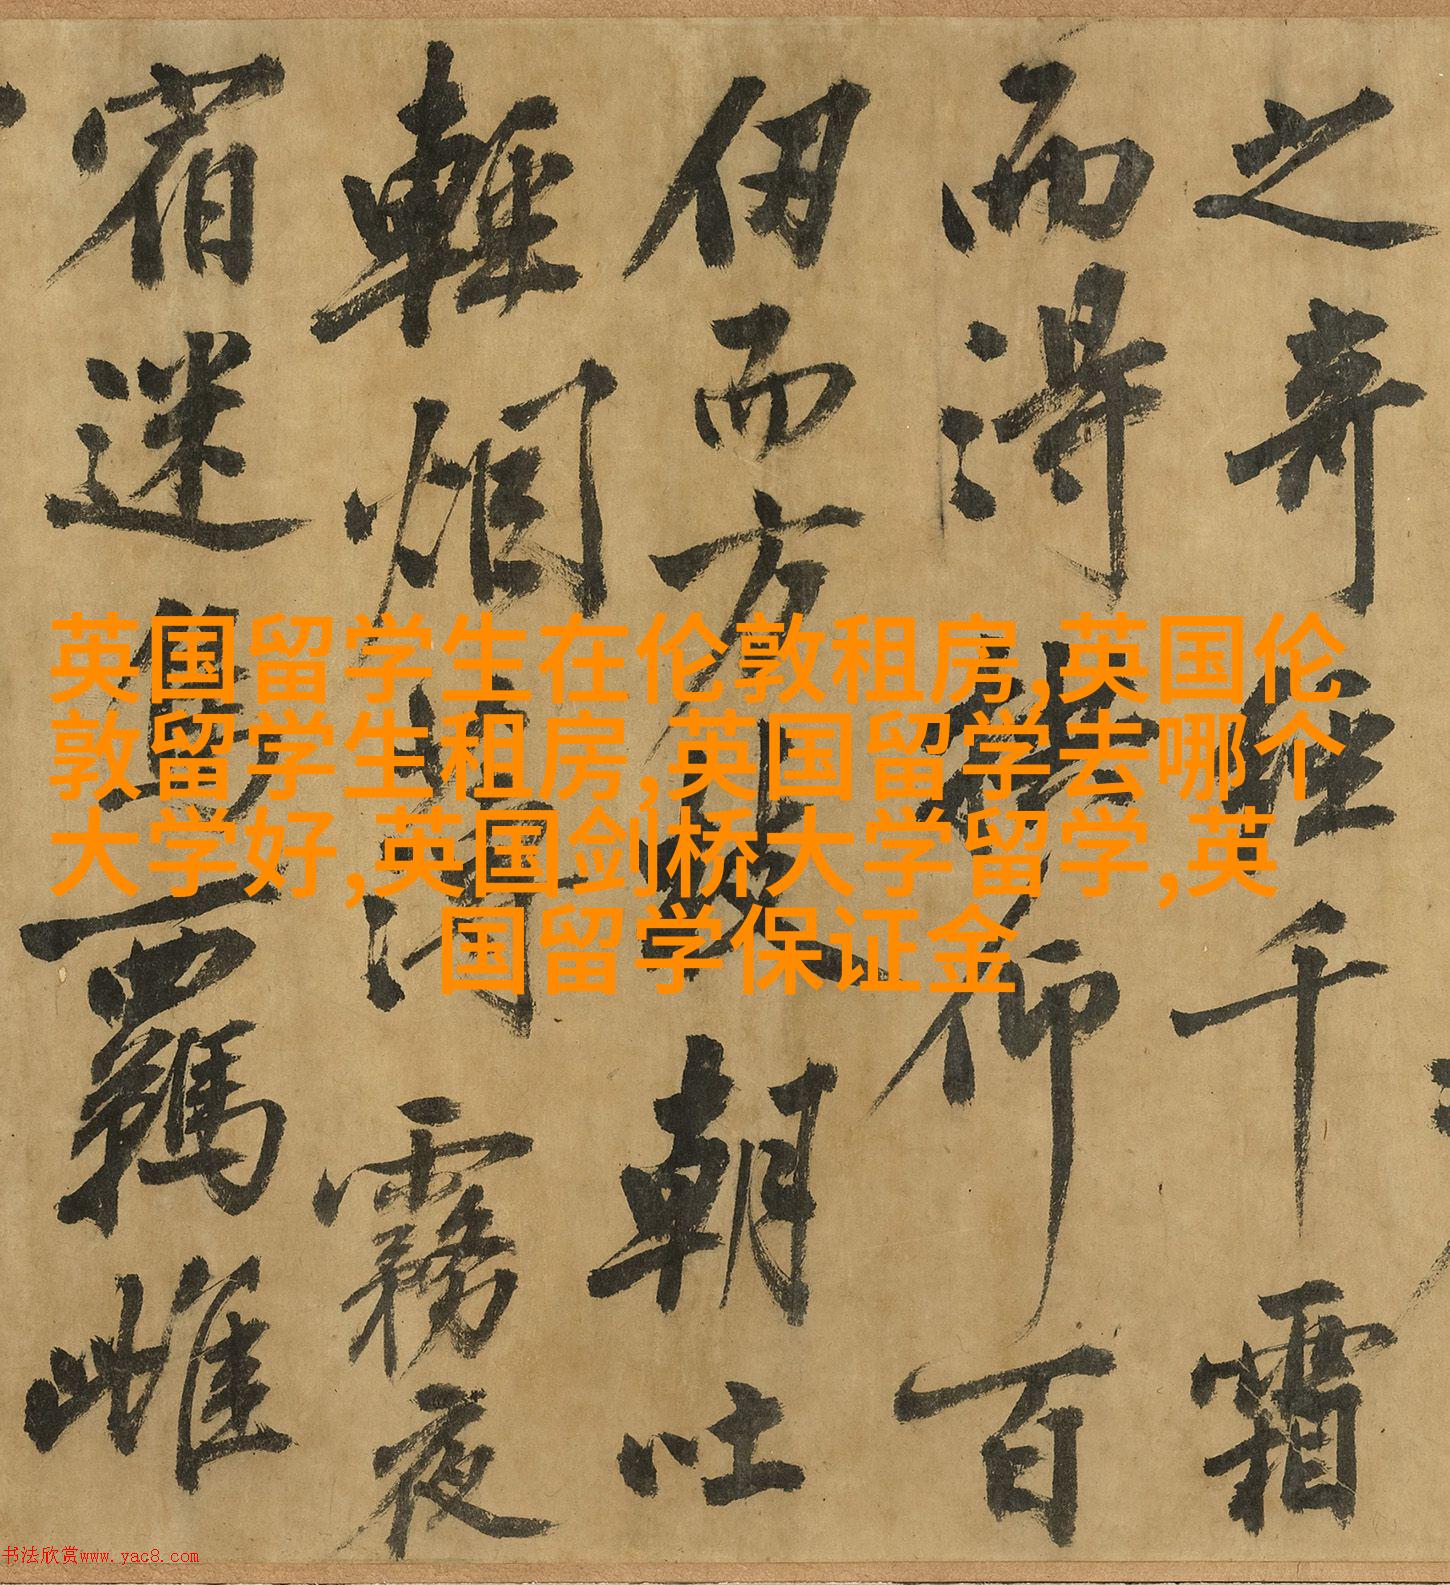 之奇經千霜
而得仰百
伊而方朝吐
輕烟霧夜
宿迷羈雌
英国留学生在伦敦租房,英国伦
敦留学生租房,英国留学去哪个
大学好,英国剑桥大学留学,英
国留学保证金
书法欣赏www.yac8.com